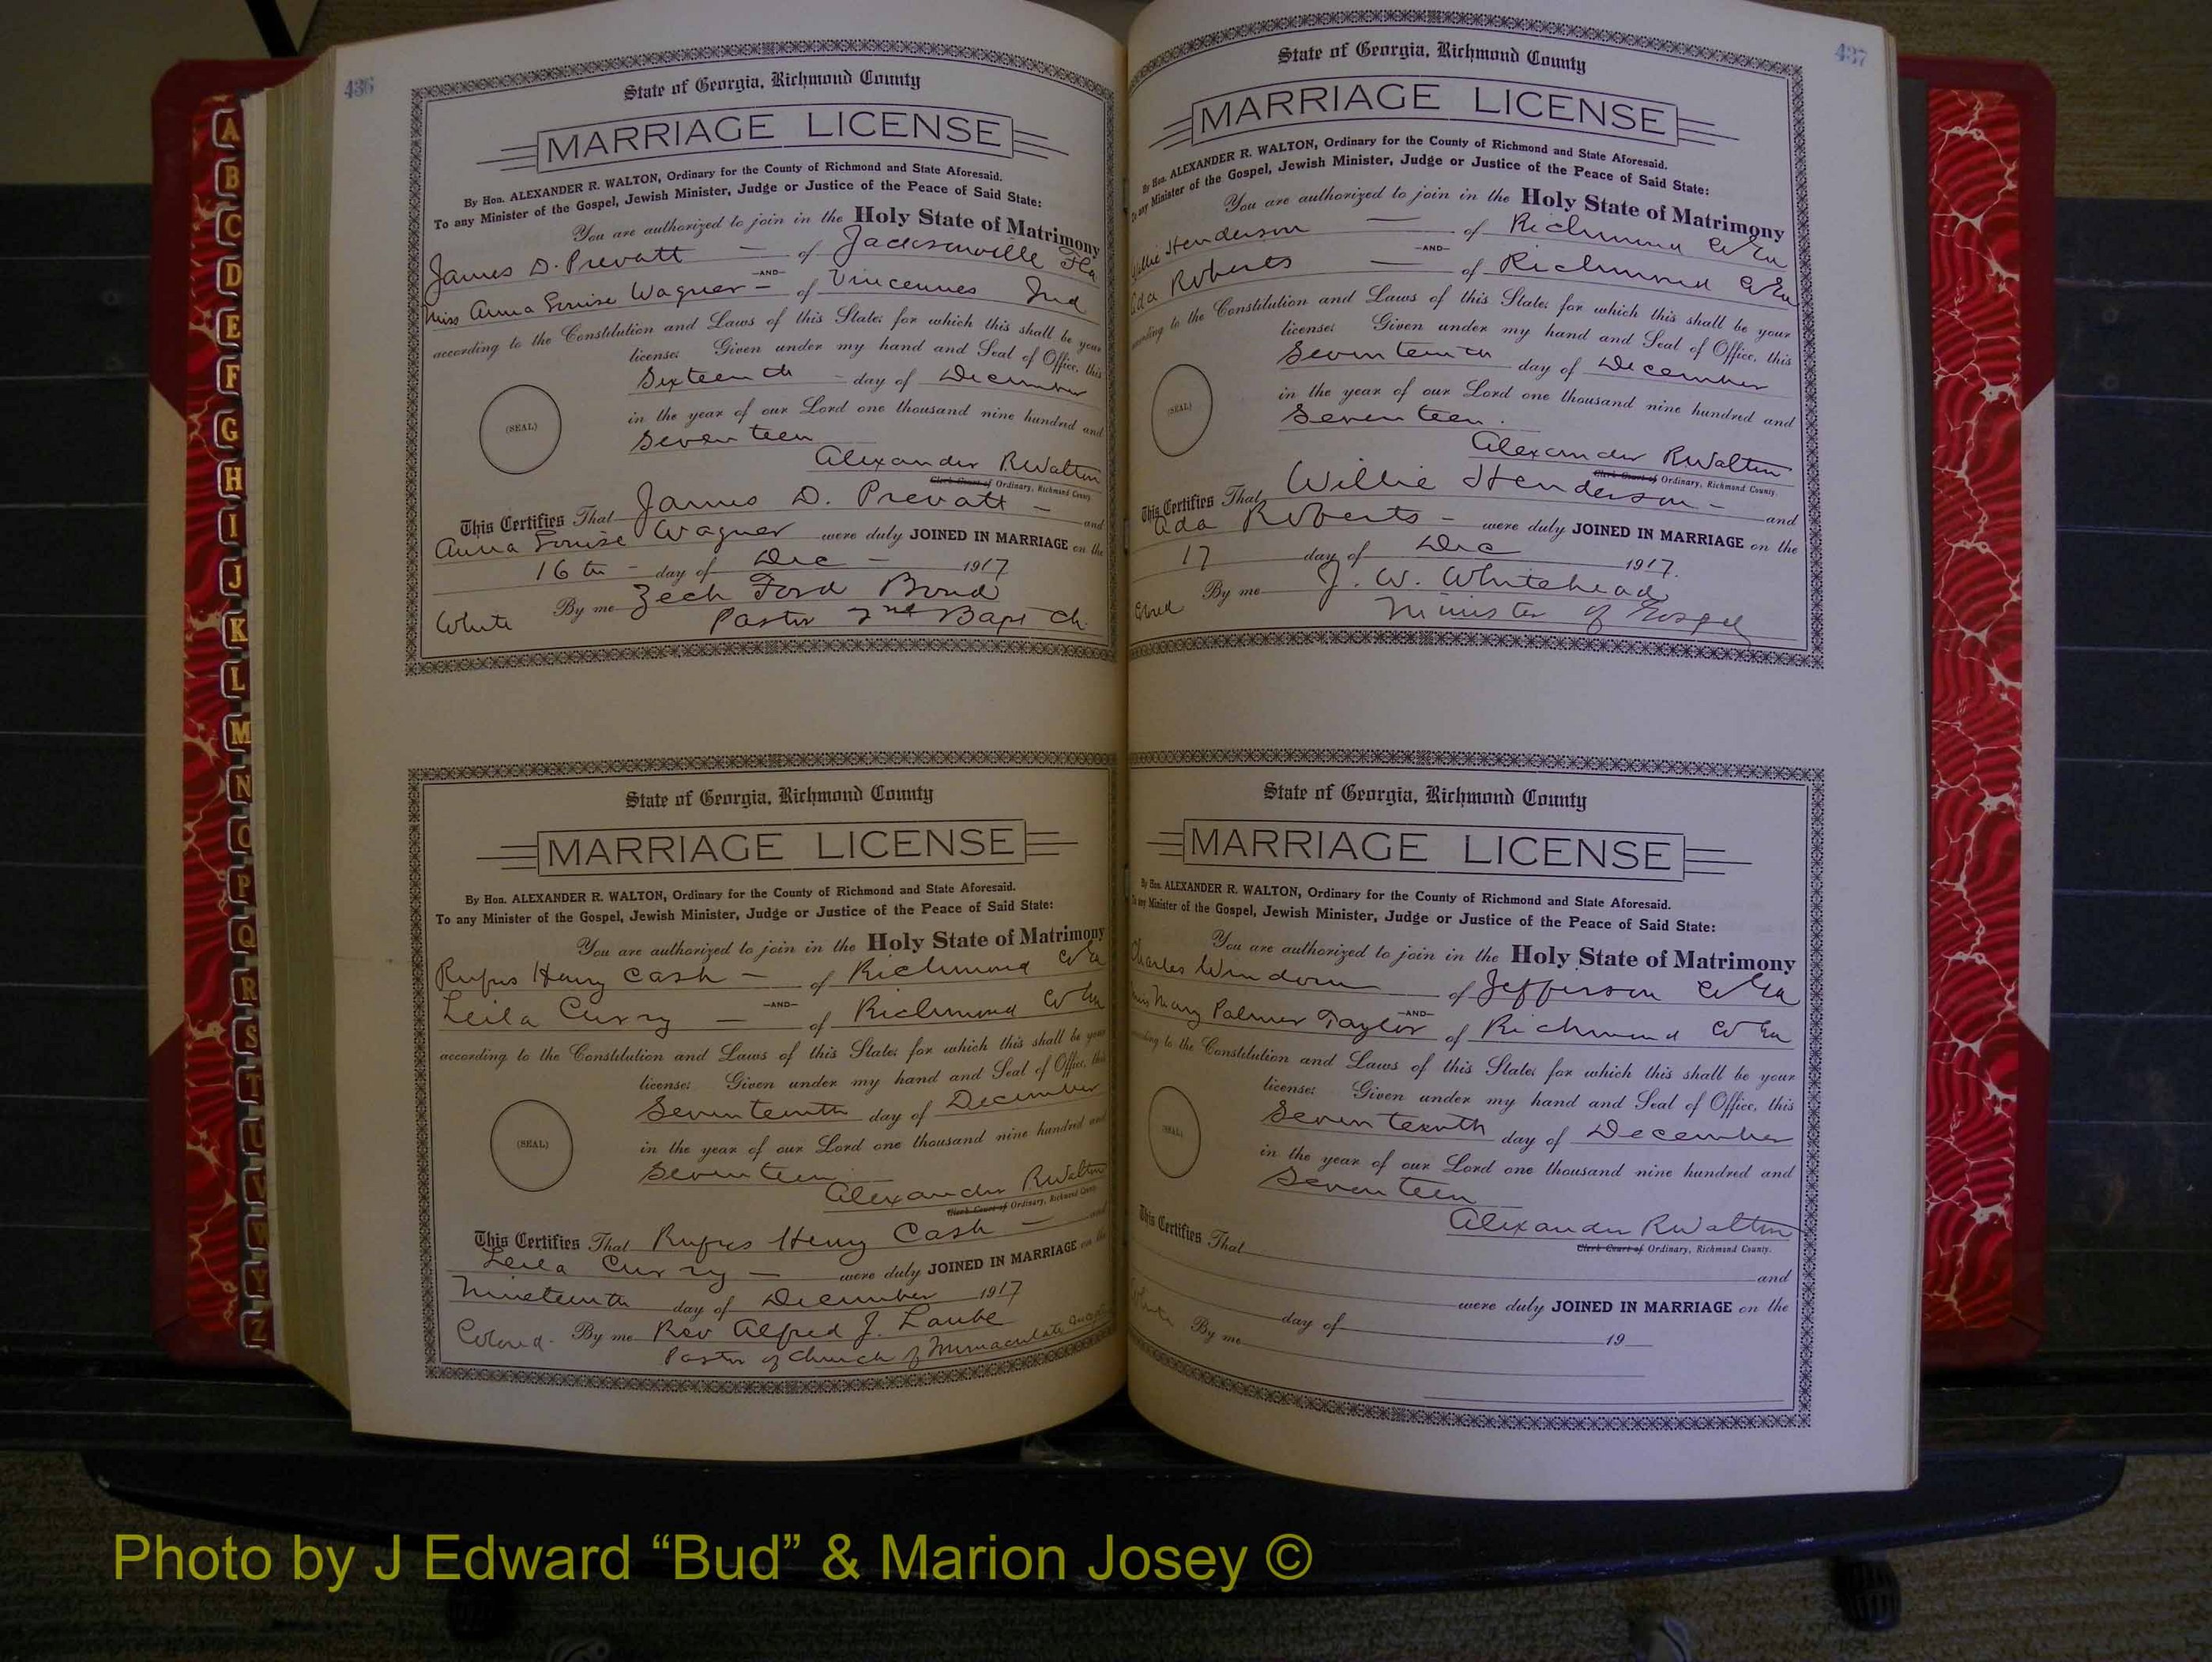 436
State of Georgia, Richmond County
MARRIAGE LICENSE
By Hon. ALEXANDER R. WALTON, Ordinary for the County of Richmond and State Aforesaid.
To any Minister of the Gospel, Jewish Minister, Judge or Justice of the Peace of Said State:
You are authorized to join in the Holy State of Matrimony
James D. Prevatt — of Jacksonville Fla
—AND—
Miss Anna Louise Wagner — of Vincennes Ind
according to the Constitution and Laws of this State; for which this shall be your
license: Given under my hand and Seal of Office, this
Sixteenth — day of December
in the year of our Lord one thousand nine hundred and
(SEAL)
Seventeen
Alexander R Walton
Clerk Court of Ordinary, Richmond County
This Certifies That James D. Prevatt — and
Anna Louise Wagner were duly JOINED IN MARRIAGE on the
16th — day of Dec — 1917
By me Zech Ford Bond
White Pastor 2nd Bapt Ch.
State of Georgia, Richmond County
MARRIAGE LICENSE
By Hon. ALEXANDER R. WALTON, Ordinary for the County of Richmond and State Aforesaid.
To any Minister of the Gospel, Jewish Minister, Judge or Justice of the Peace of Said State:
You are authorized to join in the Holy State of Matrimony
Rufus Henry Cash — of Richmond Co Ga
—AND—
Leila Curry — of Richmond Co Ga
according to the Constitution and Laws of this State; for which this shall be your
license: Given under my hand and Seal of Office, this
Seventeenth day of December
(SEAL)
in the year of our Lord one thousand nine hundred and
Seventeen
Alexander R Walton
Clerk Court of Ordinary, Richmond County
This Certifies That Rufus Henry Cash — and
Leila Curry — were duly JOINED IN MARRIAGE on the
Nineteenth day of December 1917
Colored. By me Rev Alfred J. Laube
Pastor of Church of Immaculate
437
State of Georgia, Richmond County
MARRIAGE LICENSE
By Hon. ALEXANDER R. WALTON, Ordinary for the County of Richmond and State Aforesaid.
To any Minister of the Gospel, Jewish Minister, Judge or Justice of the Peace of Said State:
You are authorized to join in the Holy State of Matrimony
Willie Henderson — of Richmond Co Ga
—AND—
Ada Roberts — of Richmond Co Ga
according to the Constitution and Laws of this State; for which this shall be your
license: Given under my hand and Seal of Office, this
Seventeenth day of December
in the year of our Lord one thousand nine hundred and
(SEAL)
Seventeen.
Alexander R Walton
Clerk Court of Ordinary, Richmond County.
This Certifies That Willie Henderson — and
Ada Roberts — were duly JOINED IN MARRIAGE on the
17 day of Dec 1917.
By me J. W. Whitehead
Colored Minister of Gospel
State of Georgia, Richmond County
MARRIAGE LICENSE
By Hon. ALEXANDER R. WALTON, Ordinary for the County of Richmond and State Aforesaid.
To any Minister of the Gospel, Jewish Minister, Judge or Justice of the Peace of Said State:
You are authorized to join in the Holy State of Matrimony
Charles Windom of Jefferson Co Ga
—AND—
Miss Mary Palmer Taylor of Richmond Co Ga
according to the Constitution and Laws of this State; for which this shall be your
license: Given under my hand and Seal of Office, this
Seventeenth day of December
(SEAL)
in the year of our Lord one thousand nine hundred and
Seventeen
Alexander R Walton
Clerk Court of Ordinary, Richmond County.
This Certifies That
and
were duly JOINED IN MARRIAGE on the
day of 19
White By me
A
B
C
D
E
F
G
H
I
J
K
L
M
N
O
P
Q
R
S
T
U
V
W
Y
Z
Photo by J Edward “Bud” & Marion Josey ©